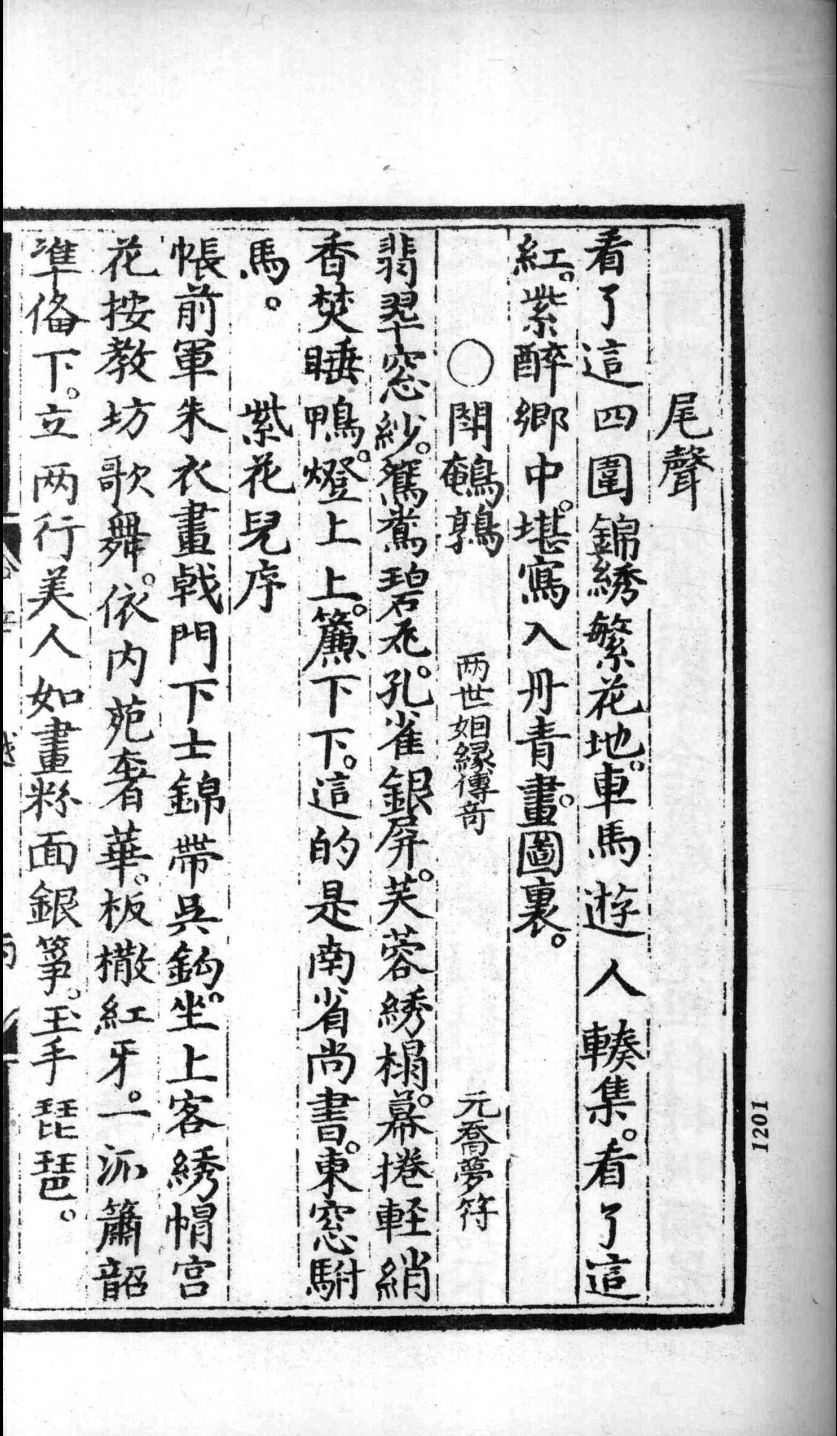 尾聲
看了這四圍錦綉繁花地。車馬遊人輳集。看了這
紅。紫醉鄉中。堪寫入丹青畫。圖裏。
○鬪鵪鶉 两世姻緣傳奇 元喬夢符
翡翠窓紗。鴛鴦碧瓦。孔雀銀屏。芙蓉綉榻。幕捲輕綃
香焚睡鴨。燈上上。簾下下。這的是南省尚書。東窓駙
馬。 紫花兒序
帳前軍朱衣畫戟門下士錦帶吳鈎。坐上客綉帽宮
花按教坊歌舞。依内苑奢華。板撒紅牙。一泒簫韶
準俻下。立两行美人如畫粉面銀箏。玉手琵琶。
1201